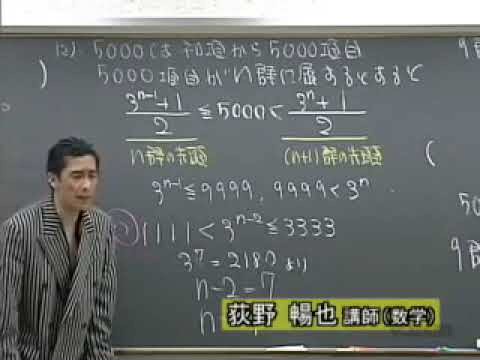 (2) 5000は初項から5000項目
) 5000項目がn群に属するとすると
(3^{n-1}+1)/2 ≦ 5000 < (3^n+1)/2
n群の先頭 (n+1)群の先頭
3^{n-1} ≦ 9999, 9999 < 3^n
1111 < 3^{n-2} ≦ 3333
3^7 = 2187 より
n-2 = 7
n
荻野 暢也 講師(数学)
9群
(
50
9群